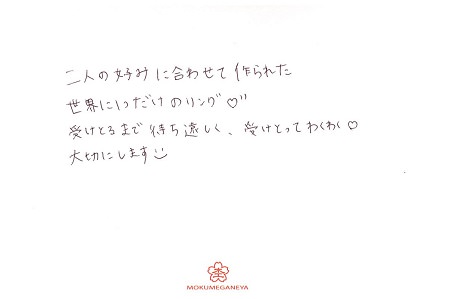 二人の好みに合わせて作られた
世界に1つだけのリング♡”
受けとるまで待ち遠しく、受けとってわくわく♡
大切にします
MOKUMEGANEYA